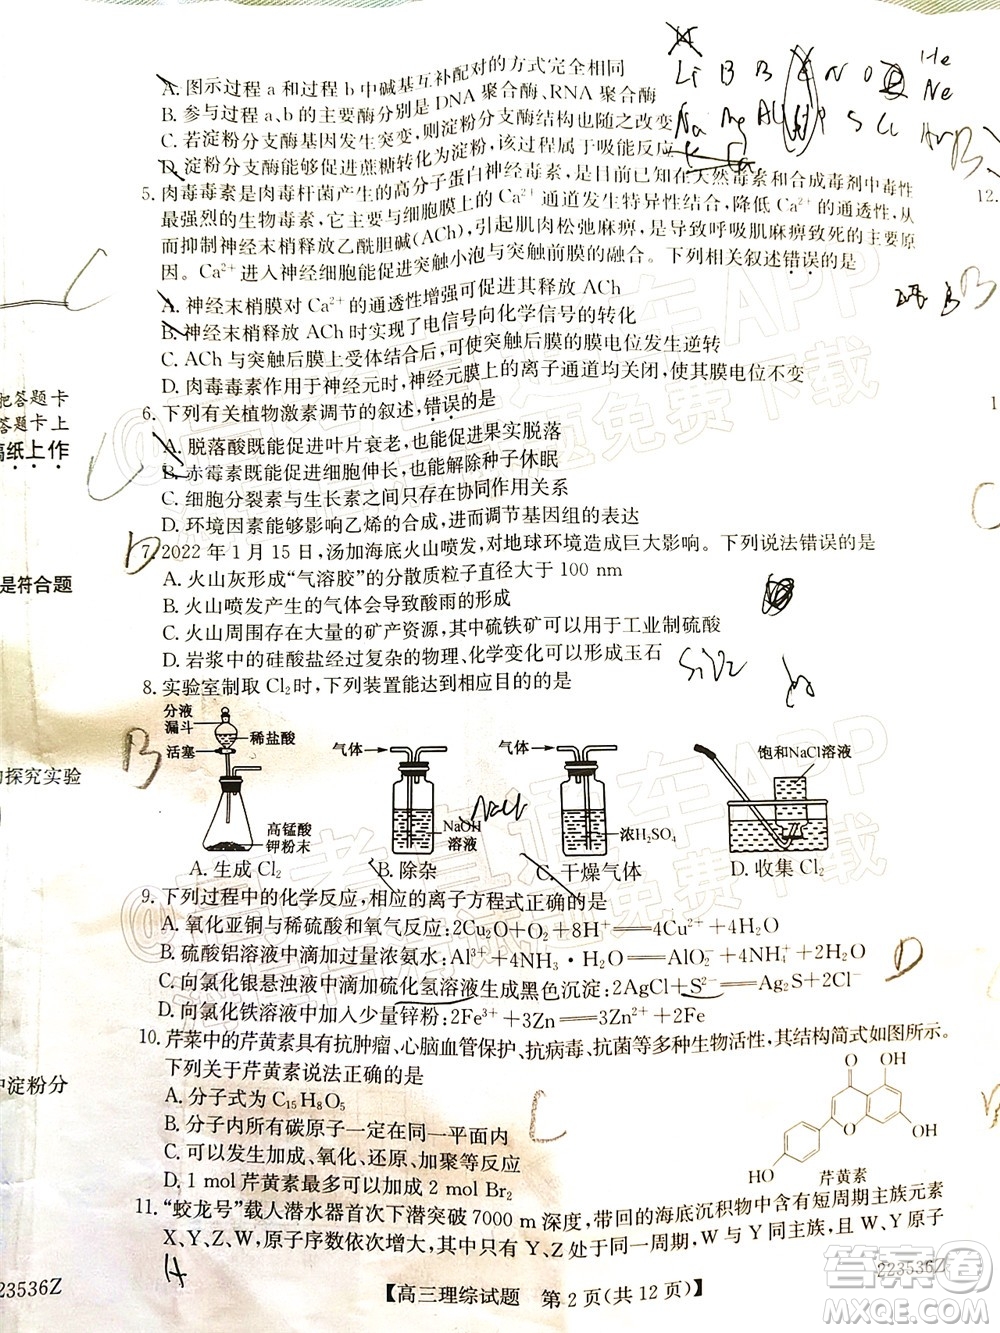 A. 图示过程 a 和过程 b 中碱基互补配对的方式完全相同
B. 参与过程 a、b 的主要酶分别是 DNA 聚合酶、RNA 聚合酶
C. 若淀粉分支酶基因发生突变,则淀粉分支酶的结构也随之改变
D. 淀粉分支酶能够促进蔗糖转化为淀粉,该过程属于吸能反应
5. 肉毒毒素是肉毒杆菌产生的高分子蛋白神经毒素,是目前已知在天然毒素和合成毒剂中毒性
最强烈的生物毒素,它主要与细胞膜上的 Ca²⁺ 通道发生特异性结合,降低 Ca²⁺ 的通透性,从
而抑制神经末梢释放乙酰胆碱(ACh),引起肌肉松弛麻痹,是导致呼吸肌麻痹致死的主要原
因。Ca²⁺ 进入神经细胞能促进突触小泡与突触前膜的融合。下列相关叙述错误的是
A. 神经末梢膜对 Ca²⁺ 的通透性增强可促进其释放 ACh
B. 神经末梢释放 ACh 时实现了电信号向化学信号的转化
C. ACh 与突触后膜上受体结合后,突触后膜的膜电位发生逆转
D. 肉毒毒素作用于神经元时,神经元的离子通道都关闭,使其膜电位不变
6. 下列有关植物激素调节的叙述,错误的是
A. 脱落酸既能促进叶片衰老,也能促进果实脱落
B. 赤霉素既能促进细胞伸长,也能解除种子休眠
C. 细胞分裂素与生长素之间只存在协同作用的关系
D. 环境因素能够影响乙烯的合成,进而调节基因组的表达
7. 2022 年 1 月 15 日,汤加海底火山喷发,对地球环境造成巨大影响。下列说法错误的是
A. 火山灰形成“气溶胶”的分散质粒子直径大于 100 nm
B. 火山喷发产生的气体会导致酸雨的形成
C. 火山周围存在大量的矿产资源,其中硫铁矿可以用于工业制硫酸
D. 岩浆中的硅酸盐经过复杂的物理、化学变化可以形成玉石
8. 实验室制取 Cl₂ 时,下列装置能达到相应目的的是
分液
漏斗
稀盐酸
活塞
高锰酸
钾粉末
气体
NaOH
溶液
气体
浓H₂SO₄
饱和NaCl溶液
A. 生成 Cl₂ B. 除杂 C. 干燥气体 D. 收集 Cl₂
9. 下列过程中的化学反应,相应的离子方程式正确的是
A. 氧化亚铜与稀硫酸和氧气反应:2Cu₂O+O₂+8H⁺══4Cu²⁺+4H₂O
B. 硫酸铝溶液中滴加过量浓氨水:Al³⁺+4NH₃·H₂O══AlO₂⁻+4NH₄⁺+2H₂O
C. 向氯化银悬浊液中滴加硫化氢溶液生成黑色沉淀:2AgCl+S²⁻══Ag₂S+2Cl⁻
D. 向氯化铁溶液中加入少量锌粉:2Fe³⁺+3Zn══2Fe+3Zn²⁺
10. 芹菜中的芹黄素具有抗肿瘤、心脑血管保护、抗病毒、抗菌等多种生物活性,其结构简式如图所示。
下列关于芹黄素说法正确的是
A. 分子式为 C₁₅H₈O₅
B. 分子中所有碳原子一定在同一平面内
C. 能发生加成、氧化、还原、取代反应
D. 1 mol 芹黄素最多可与 2 mol Br₂
O
OH
O
OH
HO
芹黄素
11. “蛟龙号”载人潜水器首次下潜突破 7000 m 深度,带回的海底沉积物中含有短周期主族元素
X、Y、Z、W,原子序数依次增大,其中只有 Y、Z 处于同一周期,W 与 Y 同主族,且 W、Y 原子
【高三理综试题 第 2 页(共 12 页)】
223536Z
223536Z
把答题卡
答题卡上
稿纸上作
是符合题
的探究实验
中淀粉分
12.
答案圈
MXQE.COM